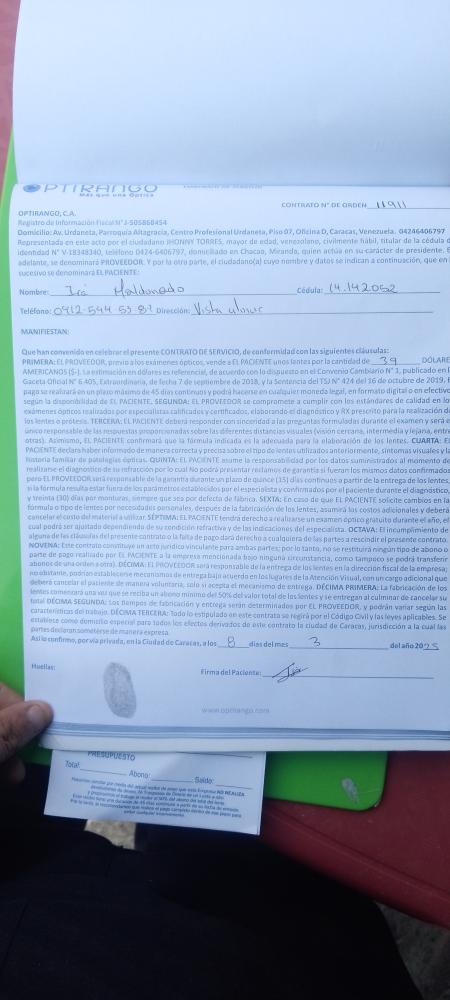 OPTIRANGO
Más que una Óptica
CONTRATO N° DE ORDEN 11911
OPTIRANGO, C.A.
Registro de Información Fiscal N° J-505868454
Domicilio: Av. Urdaneta, Parroquia Altagracia, Centro Profesional Urdaneta, Piso 07, Oficina D, Caracas, Venezuela. 04246406797
Representada en este acto por el ciudadano JHONNY TORRES, mayor de edad, venezolano, civilmente hábil, titular de la cédula d
identidad N° V-18348340, teléfono 0424-6406797, domiciliado en Chacao, Miranda, quien actúa en su carácter de presidente. E
adelante, se denominará PROVEEDOR. Y por la otra parte, el ciudadano(a) cuyo nombre y datos se indican a continuación, que en
sucesivo se denominará EL PACIENTE:
Nombre: Irá Maldonado Cédula: 14.142052
Teléfono: 0412-544 55 87 Dirección: Vista
MANIFIESTAN:
Que han convenido en celebrar el presente CONTRATO DE SERVICIO, de conformidad con las siguientes cláusulas:
PRIMERA: EL PROVEEDOR, previo a los exámenes ópticos, vende a EL PACIENTE unos lentes por la cantidad de 39 DÓLARE
AMERICANOS ($-). La estimación en dólares es referencial, de acuerdo con lo dispuesto en el Convenio Cambiario N° 1, publicado en l
Gaceta Oficial N° 6.405, Extraordinaria, de fecha 7 de septiembre de 2018, y la Sentencia del TSJ N° 424 del 16 de octubre de 2019. E
pago se realizará en un plazo máximo de 45 días continuos y podrá hacerse en cualquier moneda legal, en formato digital o en efectivo
según la disponibilidad de EL PACIENTE. SEGUNDA: EL PROVEEDOR se compromete a cumplir con los estándares de calidad en lo
exámenes ópticos realizados por especialistas calificados y certificados, elaborando el diagnóstico y RX prescrito para la realización de
los lentes o prótesis. TERCERA: EL PACIENTE deberá responder con sinceridad a las preguntas formuladas durante el examen y será e
único responsable de las respuestas proporcionadas sobre las diferentes distancias visuales (visión cercana, intermedia y lejana, entre
otras). Asimismo, EL PACIENTE confirmará que la fórmula indicada es la adecuada para la elaboración de los lentes. CUARTA: El
PACIENTE declara haber informado de manera correcta y precisa sobre el tipo de lentes utilizados anteriormente, síntomas visuales y la
historia familiar de patologías ópticas. QUINTA: EL PACIENTE asume la responsabilidad por los datos suministrados al momento de
realizarse el diagnostico de su refracción por lo cual No podrá presentar reclamos de garantía si fueran los mismos datos confirmados
pero EL PROVEEDOR será responsable de la garantía durante un plazo de quince (15) días continuos a partir de la entrega de los lentes,
si la fórmula resulta estar fuera de los parámetros establecidos por el especialista y confirmados por el paciente durante el diagnóstico,
y treinta (30) días por monturas, siempre que sea por defecto de fábrica. SEXTA: En caso de que EL PACIENTE solicite cambios en la
fórmula o tipo de lentes por necesidades personales, después de la fabricación de los lentes, asumirá los costos adicionales y deberá
cancelar el costo del material a utilizar. SÉPTIMA: EL PACIENTE tendrá derecho a realizarse un examen óptico gratuito durante el año, el
cual podrá ser ajustado dependiendo de su condición refractiva y de las indicaciones del especialista. OCTAVA: El incumplimiento de
alguna de las cláusulas del presente contrato o la falta de pago dará derecho a cualquiera de las partes a rescindir el presente contrato.
NOVENA: Este contrato constituye un acto jurídico vinculante para ambas partes; por lo tanto, no se restituirá ningún tipo de abono o
parte de pago realizado por EL PACIENTE a la empresa mencionada bajo ninguna circunstancia, como tampoco se podrá transferir
abonos de una orden a otra). DÉCIMA: EL PROVEEDOR será responsable de la entrega de los lentes en la dirección fiscal de la empresa;
no obstante, podrían establecerse mecanismos de entrega bajo acuerdo en los lugares de la Atención Visual, con un cargo adicional que
deberá cancelar el paciente de manera voluntaria, solo si acepta el mecanismo de entrega. DÉCIMA PRIMERA: La fabricación de los
lentes comenzará una vez que se reciba un abono mínimo del 50% del valor total de los lentes y se entregan al culminar de cancelar su
total DÉCIMA SEGUNDA: Los tiempos de fabricación y entrega serán determinados por EL PROVEEDOR, y podrán variar según las
características del trabajo. DÉCIMA TERCERA: Todo lo estipulado en este contrato se regirá por el Código Civil y las leyes aplicables. Se
establece como domicilio especial para todos los efectos derivados de este contrato la ciudad de Caracas, jurisdicción a la cual las
partes declaran someterse de manera expresa.
Así lo confirmo, por vía privada, en la Ciudad de Caracas, a los 8 días del mes 3 del año 2025
Huellas:
Firma del Paciente:
www.optirango.com
PRESUPUESTO
Total: Abono: Saldo: